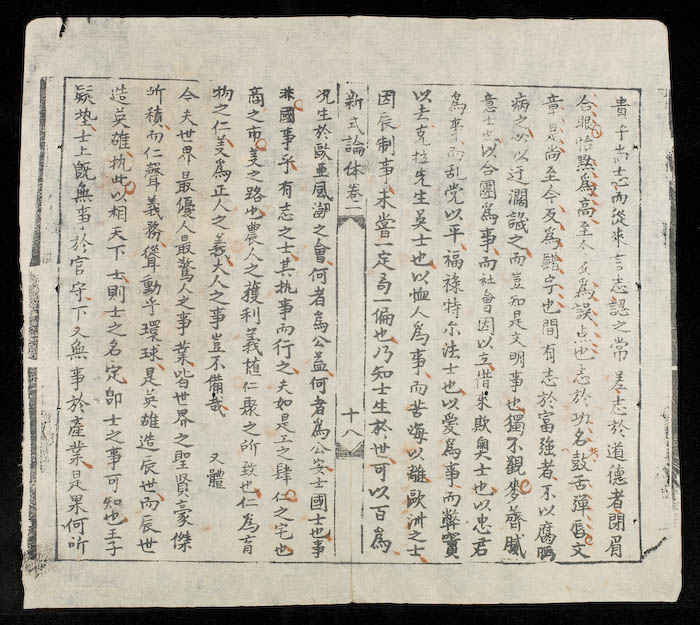 貴乎尚志而從來言志認之常差志於道德者閉眉
合眼恬㷔為高至今反為誤点也志於功名鼓舌彈唇文
章是尚至今反為鬅字也間有志於富強者不以腐
病之以以迂濶誠之而豈知是文明事也獨不觀麥薺膩
意士也以合團為事而社會因以立惜來欺奧士也以忠君
為事而乱党以平福祿特尔法士也以愛為事而弊竇
以去克拉先生英士也以恤人為事而苦海以離歐洲之士
因辰制事未嘗一定局一偏也乃知士生於世可以百為
新式論体卷一
十八
况生於歐亞風潮之會何者為公益何者為公安士國士也事
非國事乎有志之士其執事而行之夫如是工之肆仁之宅也
商之市義之路也農人之獲利義植仁聚之所致也仁為育
物之仁義為正人之義大人之事豈不備哉
又體
今夫世界最優人最驚人之事業皆世界之聖賢豪傑
所積而仁聲義務聳動乎環球是英雄造辰世而辰世
造英雄执此以相天下士則士之名定卽士之事可知也王子
疑墊士上旣無事於官守下又無事於產業是果何所